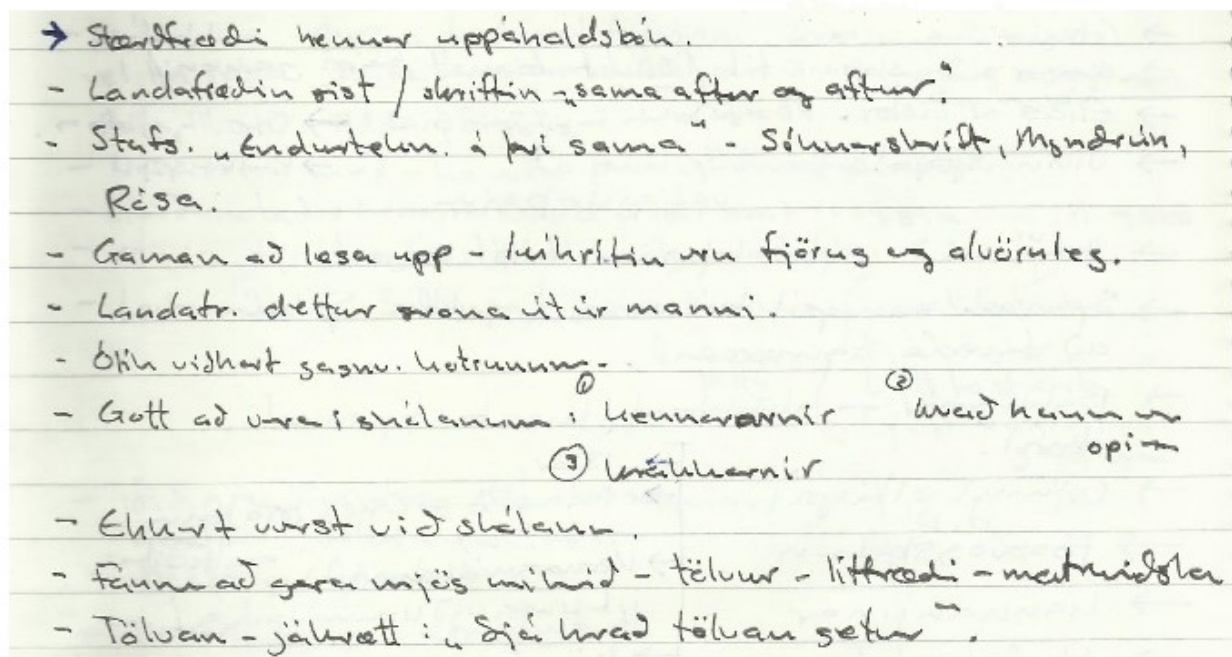 → Stærðfræði hennar uppáhaldsbók.
- Landafræðin síst / skriftin - „sama aftur og aftur."
- Stafs. „Endurtekn. á því sama" - Sóknarskrift, Myndrún,
Rósa.
- Gaman að lesa upp - leikritin eru fjörug og alvöruleg.
- Landafr. dettur svona útúr manni.
- Ólík viðhorf gagnv.
- Gott að vera í skólanum: ① kennararnir ② hvað hann er
opinn
③ krakkarnir
- Ekkert verst við skólann.
- Fáum að gera mjög mikið - tölvur - líffræði - matreiðsla
- Tölvan - jákvætt: „Sjá hvað tölvan getur".